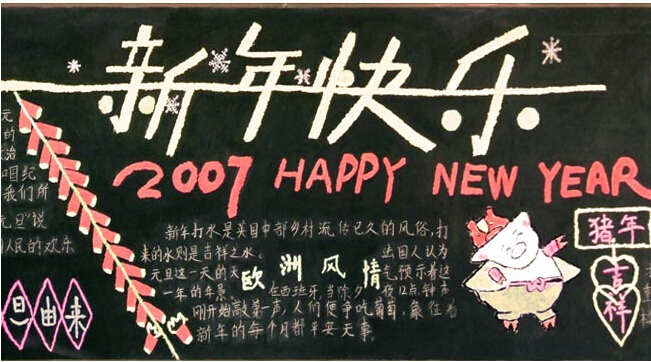 新年快乐
2007 HAPPY NEW YEAR
元
的
治
咱纪
我们所
元旦"说
人民的欢乐
旦由来
新年打水是英国中部乡村流传已久的风俗,打
来的水则是吉祥之水。
欧洲风情
法国人认为
元旦这一天的天
气预示着这
一年的年景
在西班牙,当除夕
夜12点钟声
刚开始敲第一声,人们便争吃葡萄,象征着
新年的每个月都平安无事。
猪年
吉
祥